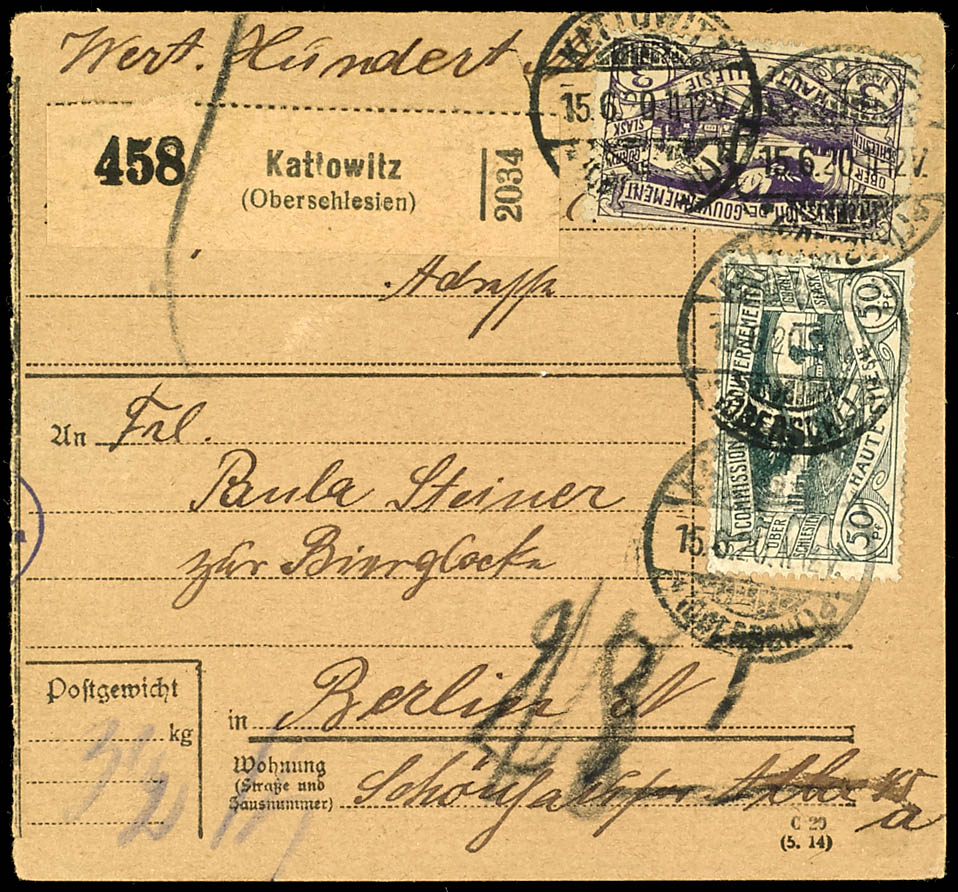 Wert. Hundert
458
Kattowitz
(Oberschlesien)
2034
KATTOWITZ
15.6.20.11-12V.
15.6.20.11-12V.
3
3
COMMISSION DE GOUVERNEMENT
HAUTE SILESIE
OBER SCHLESIEN
GÓRNY ŚLĄSK
Adresse
50 Pf
50 Pf
COMMISSION DE GOUVERNEMENT
HAUTE SILESIE
OBER SCHLESIEN
GÓRNY ŚLĄSK
15.6.
An Frl.
Paula Steiner
zur Bierglocke
48
Postgewicht
kg
in Berlin N
Wohnung
(Straße und
Hausnummer)
a
C 29
(5. 14)